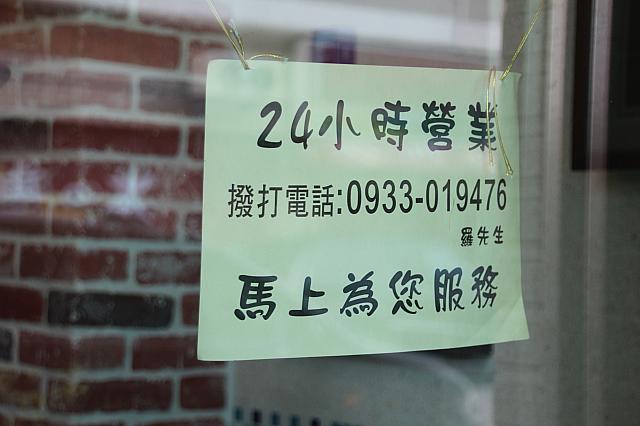 24小時營業
撥打電話:0933-019476
羅先生
馬上為您服務